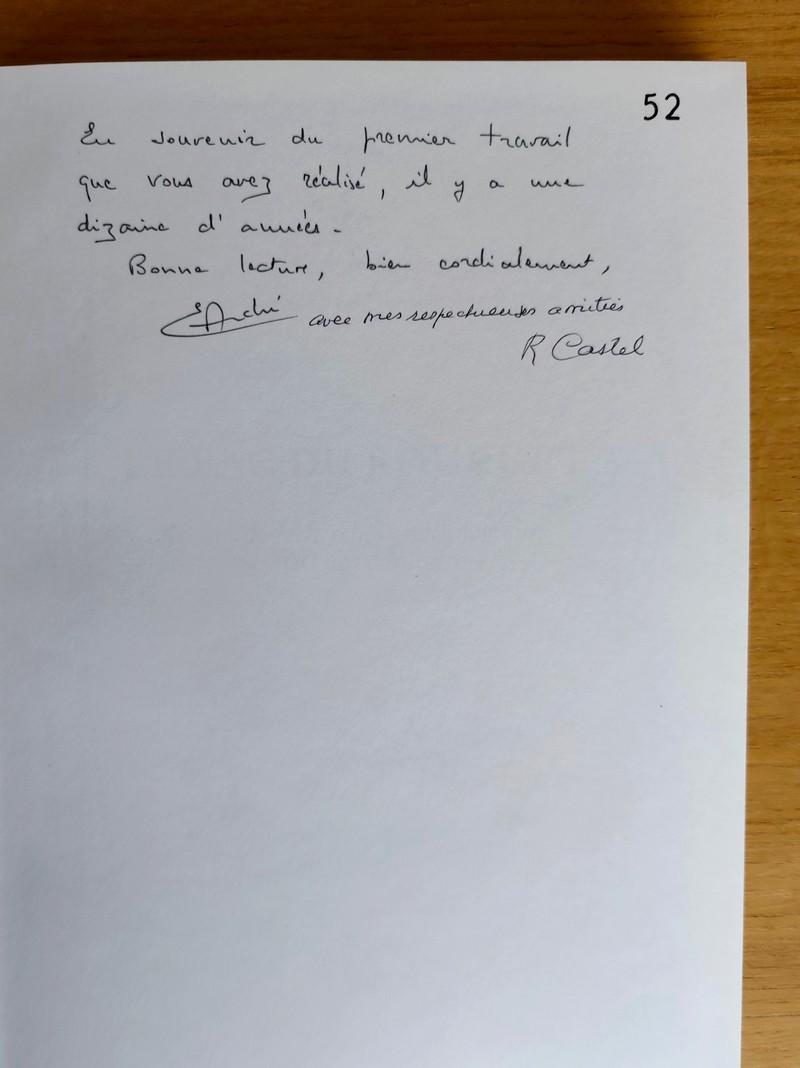 52
En souvenir du premier travail
que vous avez réalisé, il y a une
dizaine d'années.
Bonne lecture, bien cordialement,
EAndré avec mes respectueuses amitiés
R Castel